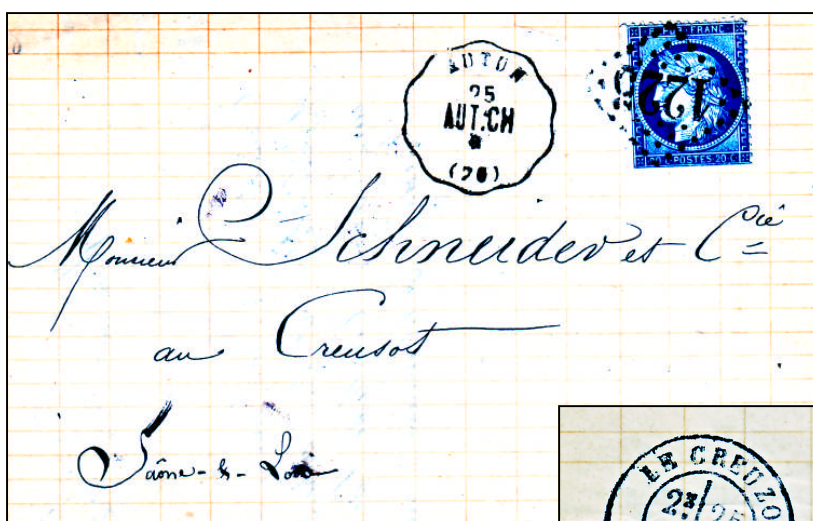 AUTUN
25
AUT.CH
(76)
FRANC
POSTES 20 C
122
Monsieur Schneider et Cie
au Creusot
Saône-&-Loire
LE CREUZO
2E/ 25